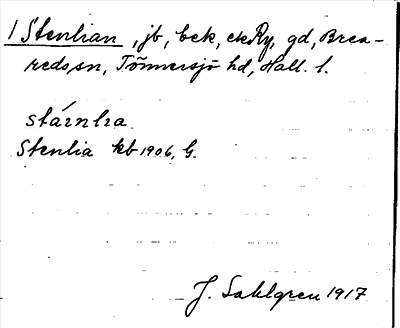 1 Stenlian, jb, bek, ekRy, gd, Brea-
reds sn, Tönnersjö hd, Hall. l.
stárnlıa
Stenlia kb 1906, G.
J. Sahlgren 1917